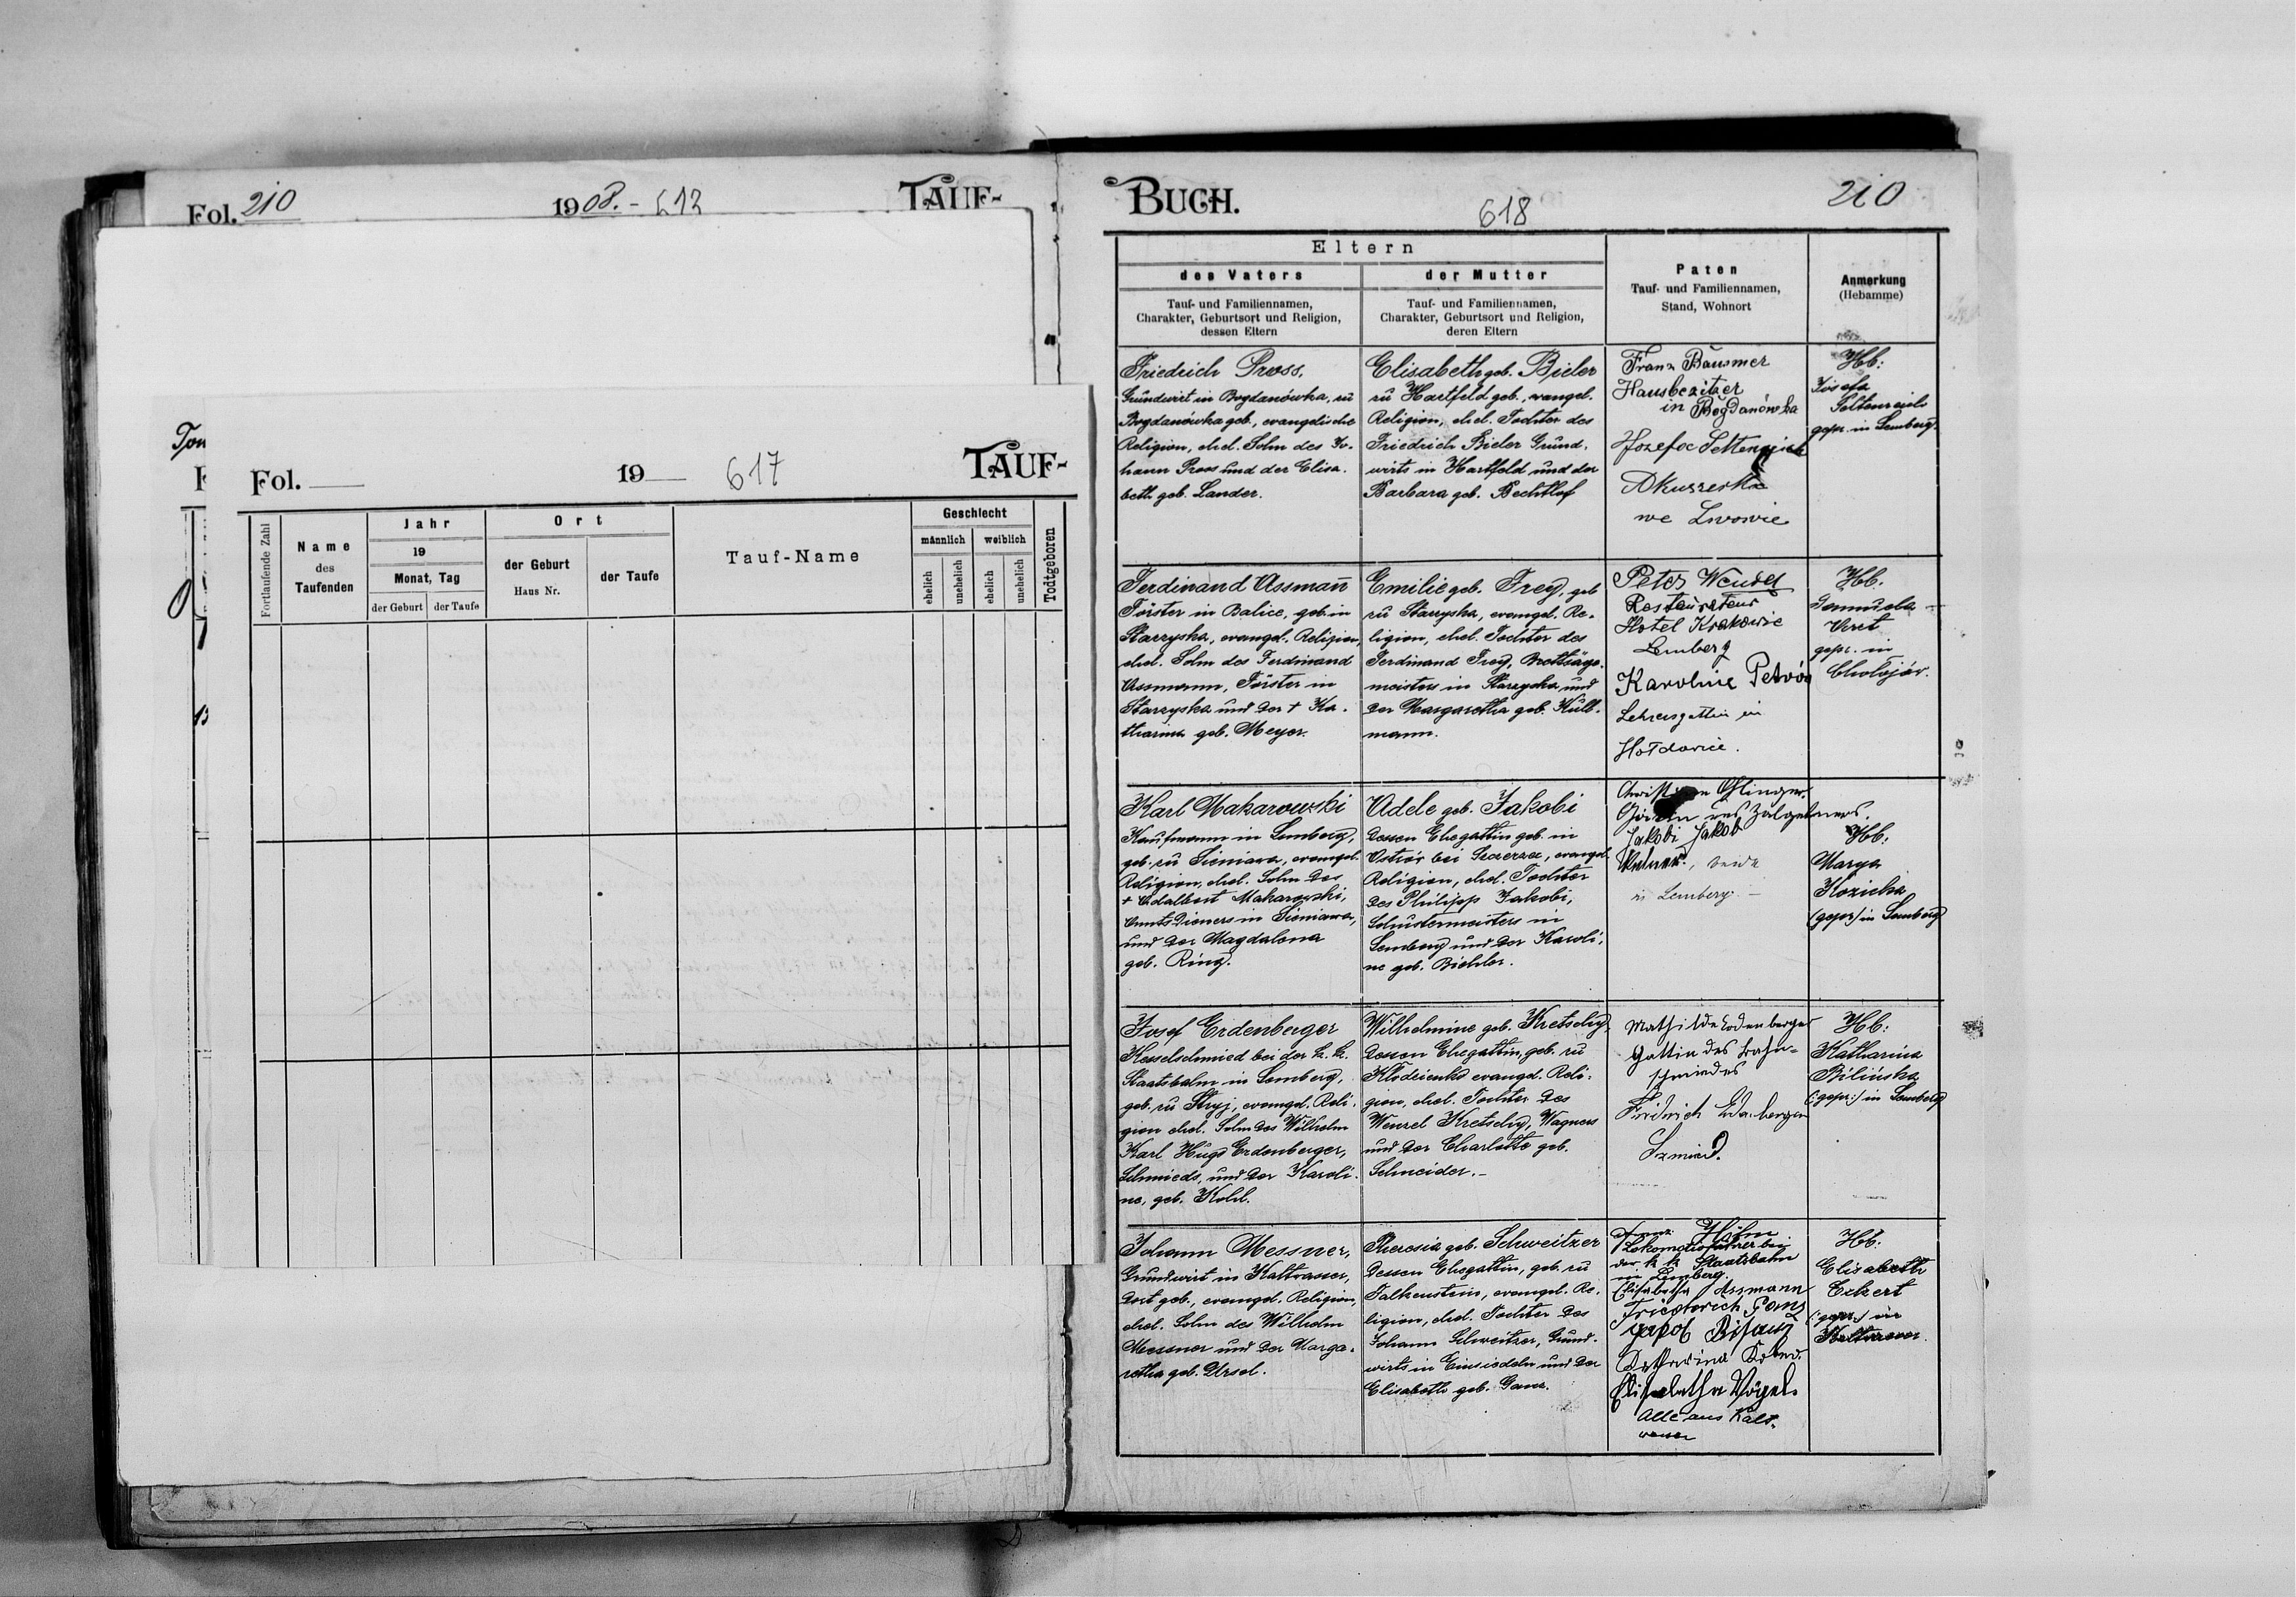 Fol. 210
1908. - 613
TAUF-
Fol.
19
617
TAUF-
Fortlaufende Zahl
Name
des
Taufenden
Jahr
19
Monat, Tag
der Geburt
der Taufe
Ort
der Geburt
Haus Nr.
der Taufe
Tauf-Name
Geschlecht
männlich
weiblich
ehelich
unehelich
ehelich
unehelich
Todtgeboren
BUCH.
618
210
Eltern
des Vaters
Tauf- und Familiennamen,
Charakter, Geburtsort und Religion,
dessen Eltern
der Mutter
Tauf- und Familiennamen,
Charakter, Geburtsort und Religion,
deren Eltern
Paten
Tauf- und Familiennamen,
Stand, Wohnort
Anmerkung
(Hebamme)
Friedrich Pross,
Grundwirt in Bogdanówka, zu
Bogdanówka geb., evangelische
Religion, ehel. Sohn des Jo-
hann Pross und der Elisa-
beth geb. Lander.
Elisabeth geb. Bieler
zu Hartfeld geb., evangel.
Religion, ehel. Tochter des
Friedrich Bieler Grund-
wirts in Hartfeld und der
Barbara geb. Bechtlof
Franz Bäusmer
Hausbezitzer
in Bogdanówka
Jozefa Settenreich
Akuszerka
we Lwowie
Hb:
Josefa
Settenreich
gepr. in Lemberg.
Ferdinand Assmann
Förster in Balice, geb. in
Starzyska, evangel. Religion,
ehel. Sohn des Ferdinand
Assmann, Förster in
Starzyska und der + Ka-
tharina geb. Meyer.
Emilie geb. Frey, geb
zu Starzyska, evangel. Re-
ligion, ehel. Tochter des
Ferdinand Frey, Brettsäge-
meisters in Starzyska und
der Margaretha geb. Kull-
mann.
Peter Wendel
Restaurateur
Hotel Krakowie
Lemberg
Karoline
Lehrersgattin in
Hołdowice.
Hb.
gepr. in
Chołojów.
Karl Makarowski
Kaufmann in Lemberg,
geb. zu Sieniawa, evangel.
Religion, ehel. Sohn des
+ Adalbert Makarowski,
Amtsdieners in Sieniawa,
und der Magdalena
geb. Ring.
Adele geb. Jakobi
dessen Ehegattin geb. in
bei evangel.
Religion, ehel. Tochter
des Philipp Jakobi,
Schustermeisters in
Lemberg und der Karoli-
ne geb. Bichler.
Jakobi Jakob
beide
in Lemberg.
Hb:
Marya
Kozicka
(gepr.) in Lemberg
Josef Erdenberger
Kesselschmied bei der k. k.
Staatsbahn in Lemberg,
geb. zu Stryj, evangel. Reli-
gion ehel. Sohn des Wilhelm
Karl Hugo Erdenberger,
Schmieds, und der Karoli-
ne, geb. Kohl.
Wilhelmine geb. Kretschy,
dessen Ehegattin, geb. zu
Kłodzienko evangel. Reli-
gion, ehel. Tochter des
Wenzel Kretschy, Wagners
und der Charlotte geb.
Schneider.-
Mathilde Erdenberger
Gattin des Bahn-
schmiedes
Fridrich Erdenberger
Hb:
Katharina
Bilińska
(:gepr:) in Lemberg
Johann Messner,
Grundwirt in Kaltwasser,
dort geb., evangel. Religion,
ehel. Sohn des Wilhelm
Messner und der Marga-
retha geb. Ursel.
Theresia geb. Schweitzer
dessen Ehegattin, geb. zu
Falkenstein, evangel. Re-
ligion, ehel. Tochter des
Johann Schweitzer, Grund-
wirts in Einsiedeln und der
Elisabeth geb. Ganz.
Lokomotivführer bei
der k k Staatsbahn
in Lemberg
Elisabetha Assmann
Friedrich Ganz
Katharina
Elisabetha Vögel.
Alle aus Kalt-
wasser
Hb:
Elisabeth
Eckert
(:gepr:) in
Kaltwasser.